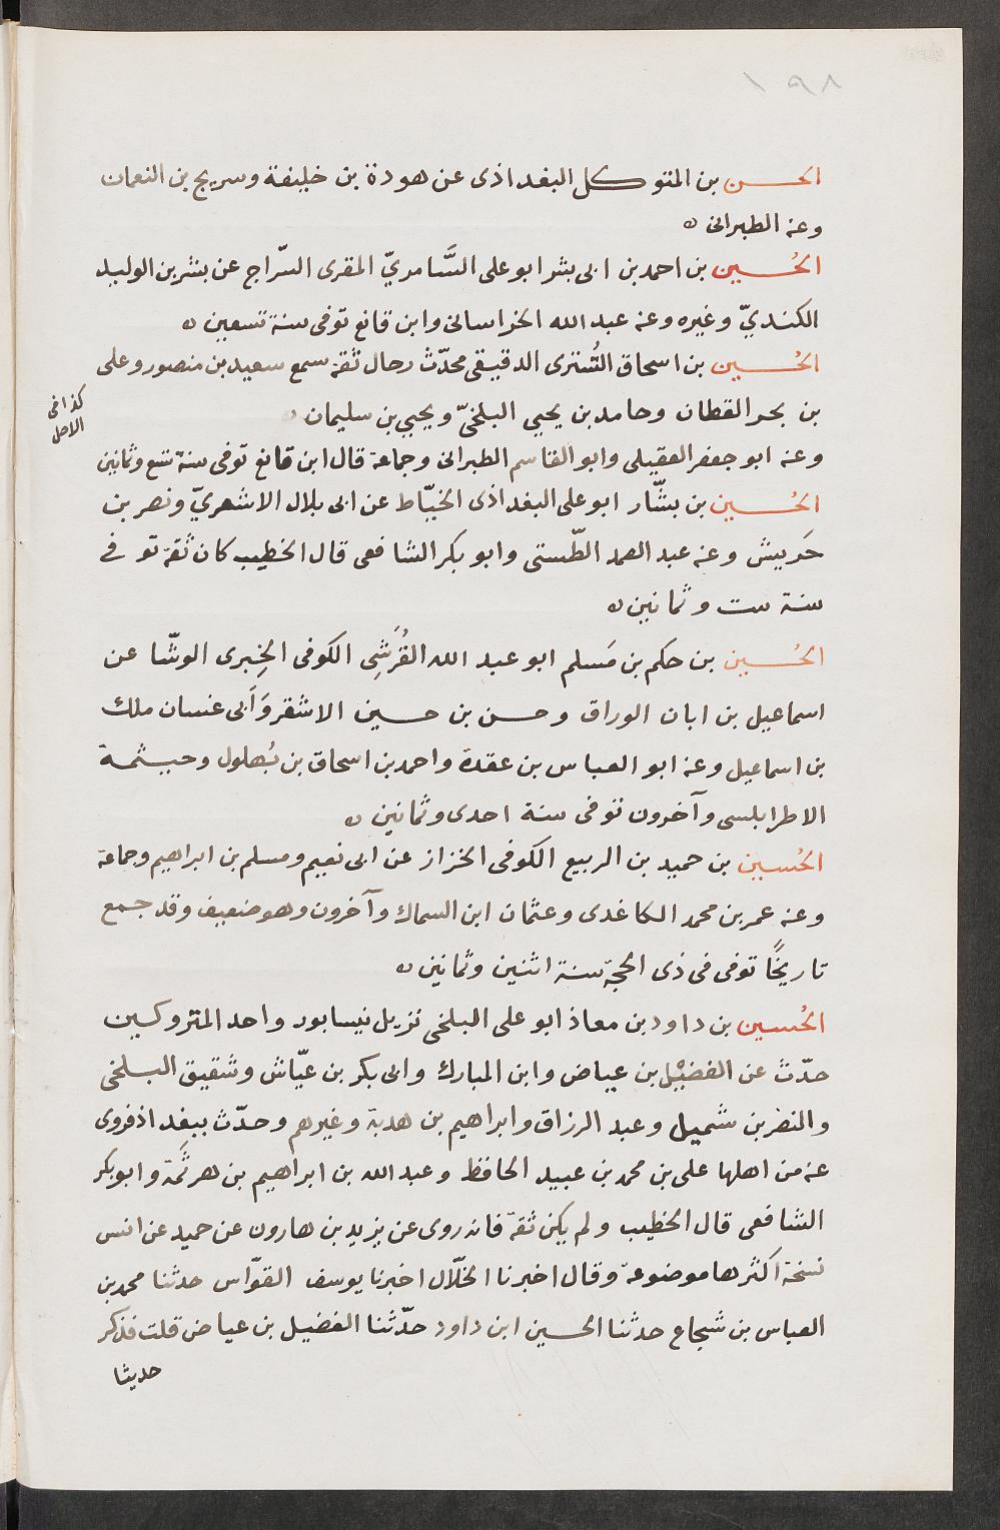 ١٩٨
الحسن بن المتوكل البغداذى عن هوذة بن خليفة وسريج بن النعمان
وعنه الطبرانى ه
الحُسين بن احمد بن ابى بشر ابو على السَّامريّ المقرى السّراج عن بشر بن الوليد
الكنديّ وغيره وعنه عبد الله الخراسانى وابن قانع توفى سنة تسعين ه
الحُسين بن اسحاق التُسترى الدقيقى محدّث رحال ثقة سمع سعيد بن منصور وعلى
بن بحر القطان وحامد بن يحيى البلخىّ ويحيى بن سليمان ه
كذا فى
الاصل
وعنه ابو جعفر العقيلى وابو القاسم الطبرانى وجماعة قال ابن قانع توفى سنة تسع وثمانين
الحُسين بن بشّار ابو على البغداذى الخيّاط عن ابى بلال الاشعريّ ونصر بن
حَريش وعنه عبد الصمد الطّستى وابو بكر الشافعى قال الخطيب كان ثقة توفى
سنة ست وثمانين ه
الحُسين بن حكم بن مَسلم ابو عبد الله القُرَشِى الكوفى الحِبرى الوشّا عن
اسماعيل بن ابان الوراق وحسن بن حسين الاشقر وَاَبى غسان ملك
بن اسماعيل وعنه ابو العباس بن عقدة واحمد بن اسحاق بن بُهلول وخيثمة
الاطرابلسى وآخرون توفى سنة احدى وثمانين ه
الحُسين بن حميد بن الربيع الكوفى الخزاز عن ابى نعيم ومسلم بن ابراهيم وجماعة
وعنه عمر بن محمد الكاغدى وعثمان ابن السماك وآخرون وهو ضعيف وقد جمع
تاريخًا توفى فى ذى الحجة سنة اثنين وثمانين ه
الحُسين بن داود بن معاذ ابو على البلخى نزيل نيسابور واحد المتروكين
حدّث عن الفضيْل بن عياض وابن المبارك وابى بكر بن عيّاش وشقيق البلخى
والنضر بن شميل وعبد الرزاق وابراهيم بن هدبة وغيرهم وحدّث ببغداذ فروى
عنه من اهلها على بن محمد بن عبيد الحافظ وعبد الله بن ابراهيم بن هرثَمة وابو بكر
الشافعى قال الخطيب ولم يكن ثقة فانه روى عن يزيد بن هارون عن حميد عن انس
نسخة اكثرها موضوعة وقال اخبرنا الخلّال اخبرنا يوسف القوّاس حدثنا محمد بن
العباس بن شجاع حدثنا الحسين ابن داود حدّثنا الفضيل بن عياض قلت فذكر
حديثا